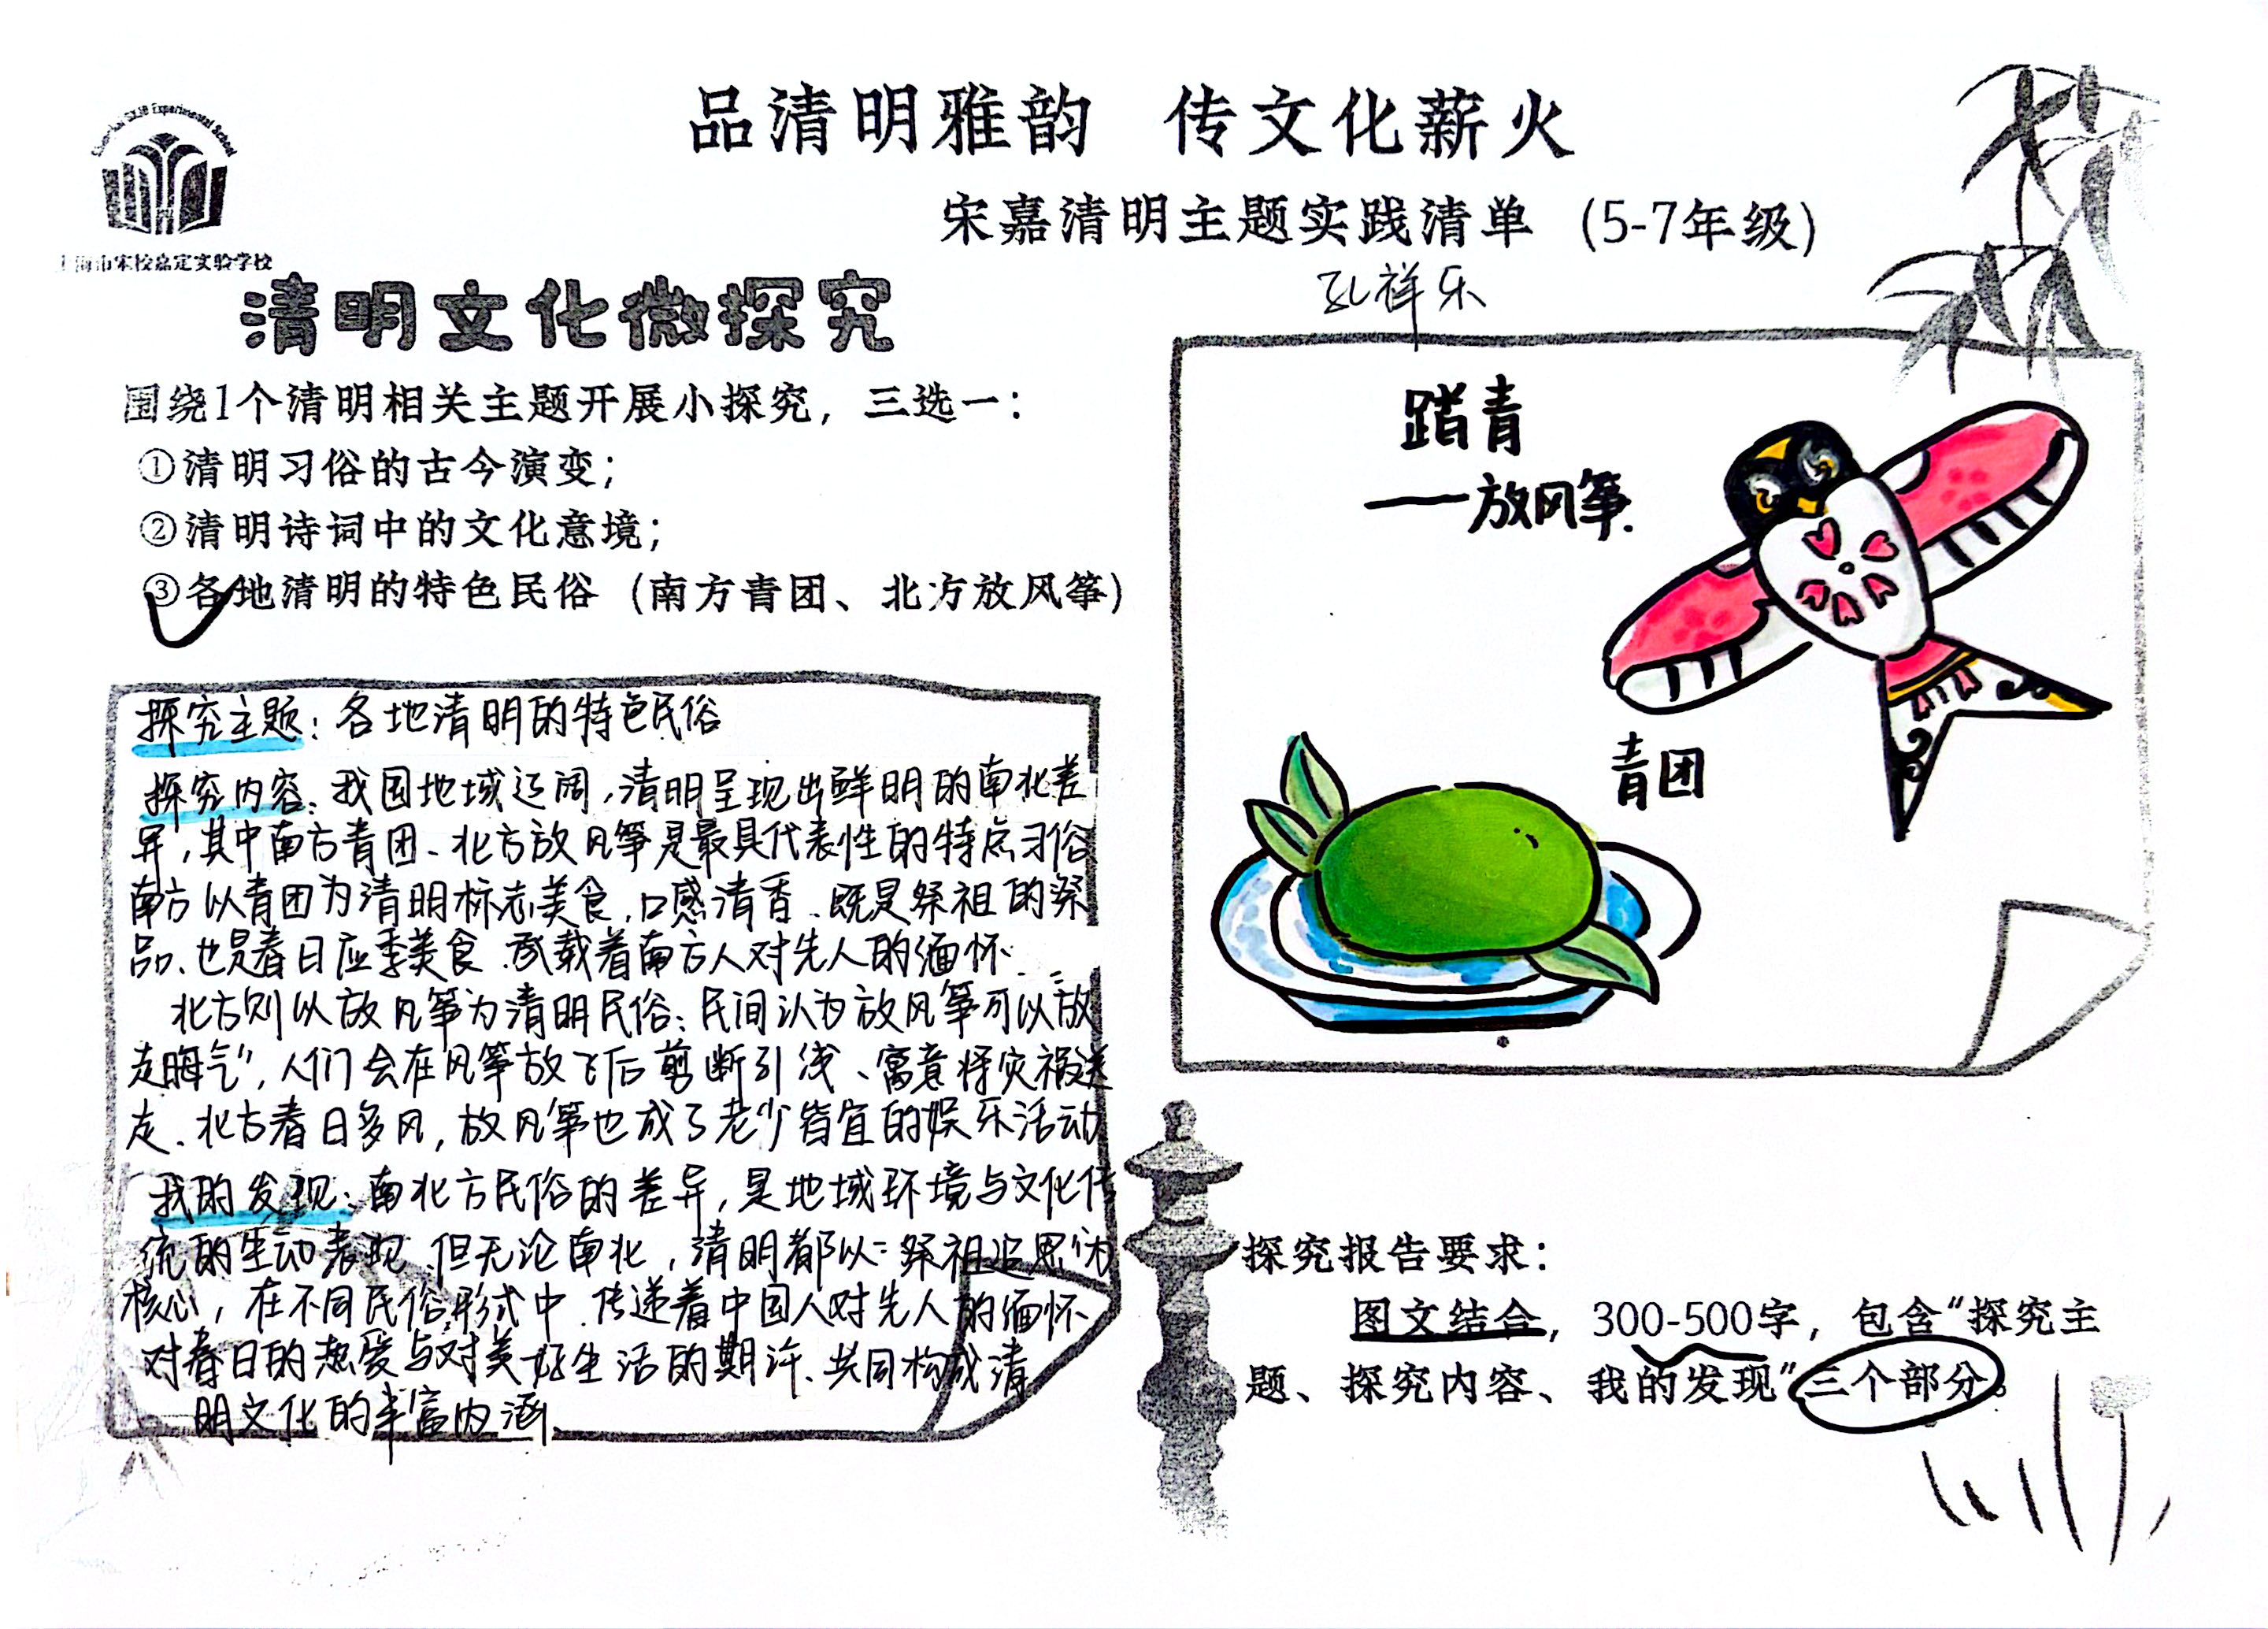 品清明雅韵 传文化薪火
宋嘉清明主题实践清单 (5-7年级)
上海市宋校嘉定实验学校
孔祥乐
清明文化微探究
围绕1个清明相关主题开展小探究，三选一：
①清明习俗的古今演变；
②清明诗词中的文化意境；
③各地清明的特色民俗（南方青团、北方放风筝）
探究主题：各地清明的特色民俗
探究内容：我国地域辽阔，清明呈现出鲜明的南北差
异，其中南方青团、北方放风筝是最具代表性的特点习俗
南方以青团为清明标志美食，口感清香、既是祭祖的祭
品、也是春日应季美食、承载着南方人对先人的缅怀
北方则以放风筝为清明民俗；民间认为放风筝可以放
走晦气”，人们会在风筝放飞后剪断引线、寓意将灾祸送
走、北方春日多风，放风筝也成了老少皆宜的娱乐活动
我的发现：南北方民俗的差异，是地域环境与文化传
统的生动表现、但无论南北，清明都以“祭祖追思”为
核心，在不同民俗形式中、传递着中国人对先人的缅怀、
对春日的热爱与对美好生活的期许、共同构成清
明文化的丰富内涵、
踏青
——放风筝.
青团
探究报告要求：
图文结合，300-500字，包含“探究主
题、探究内容、我的发现”三个部分。